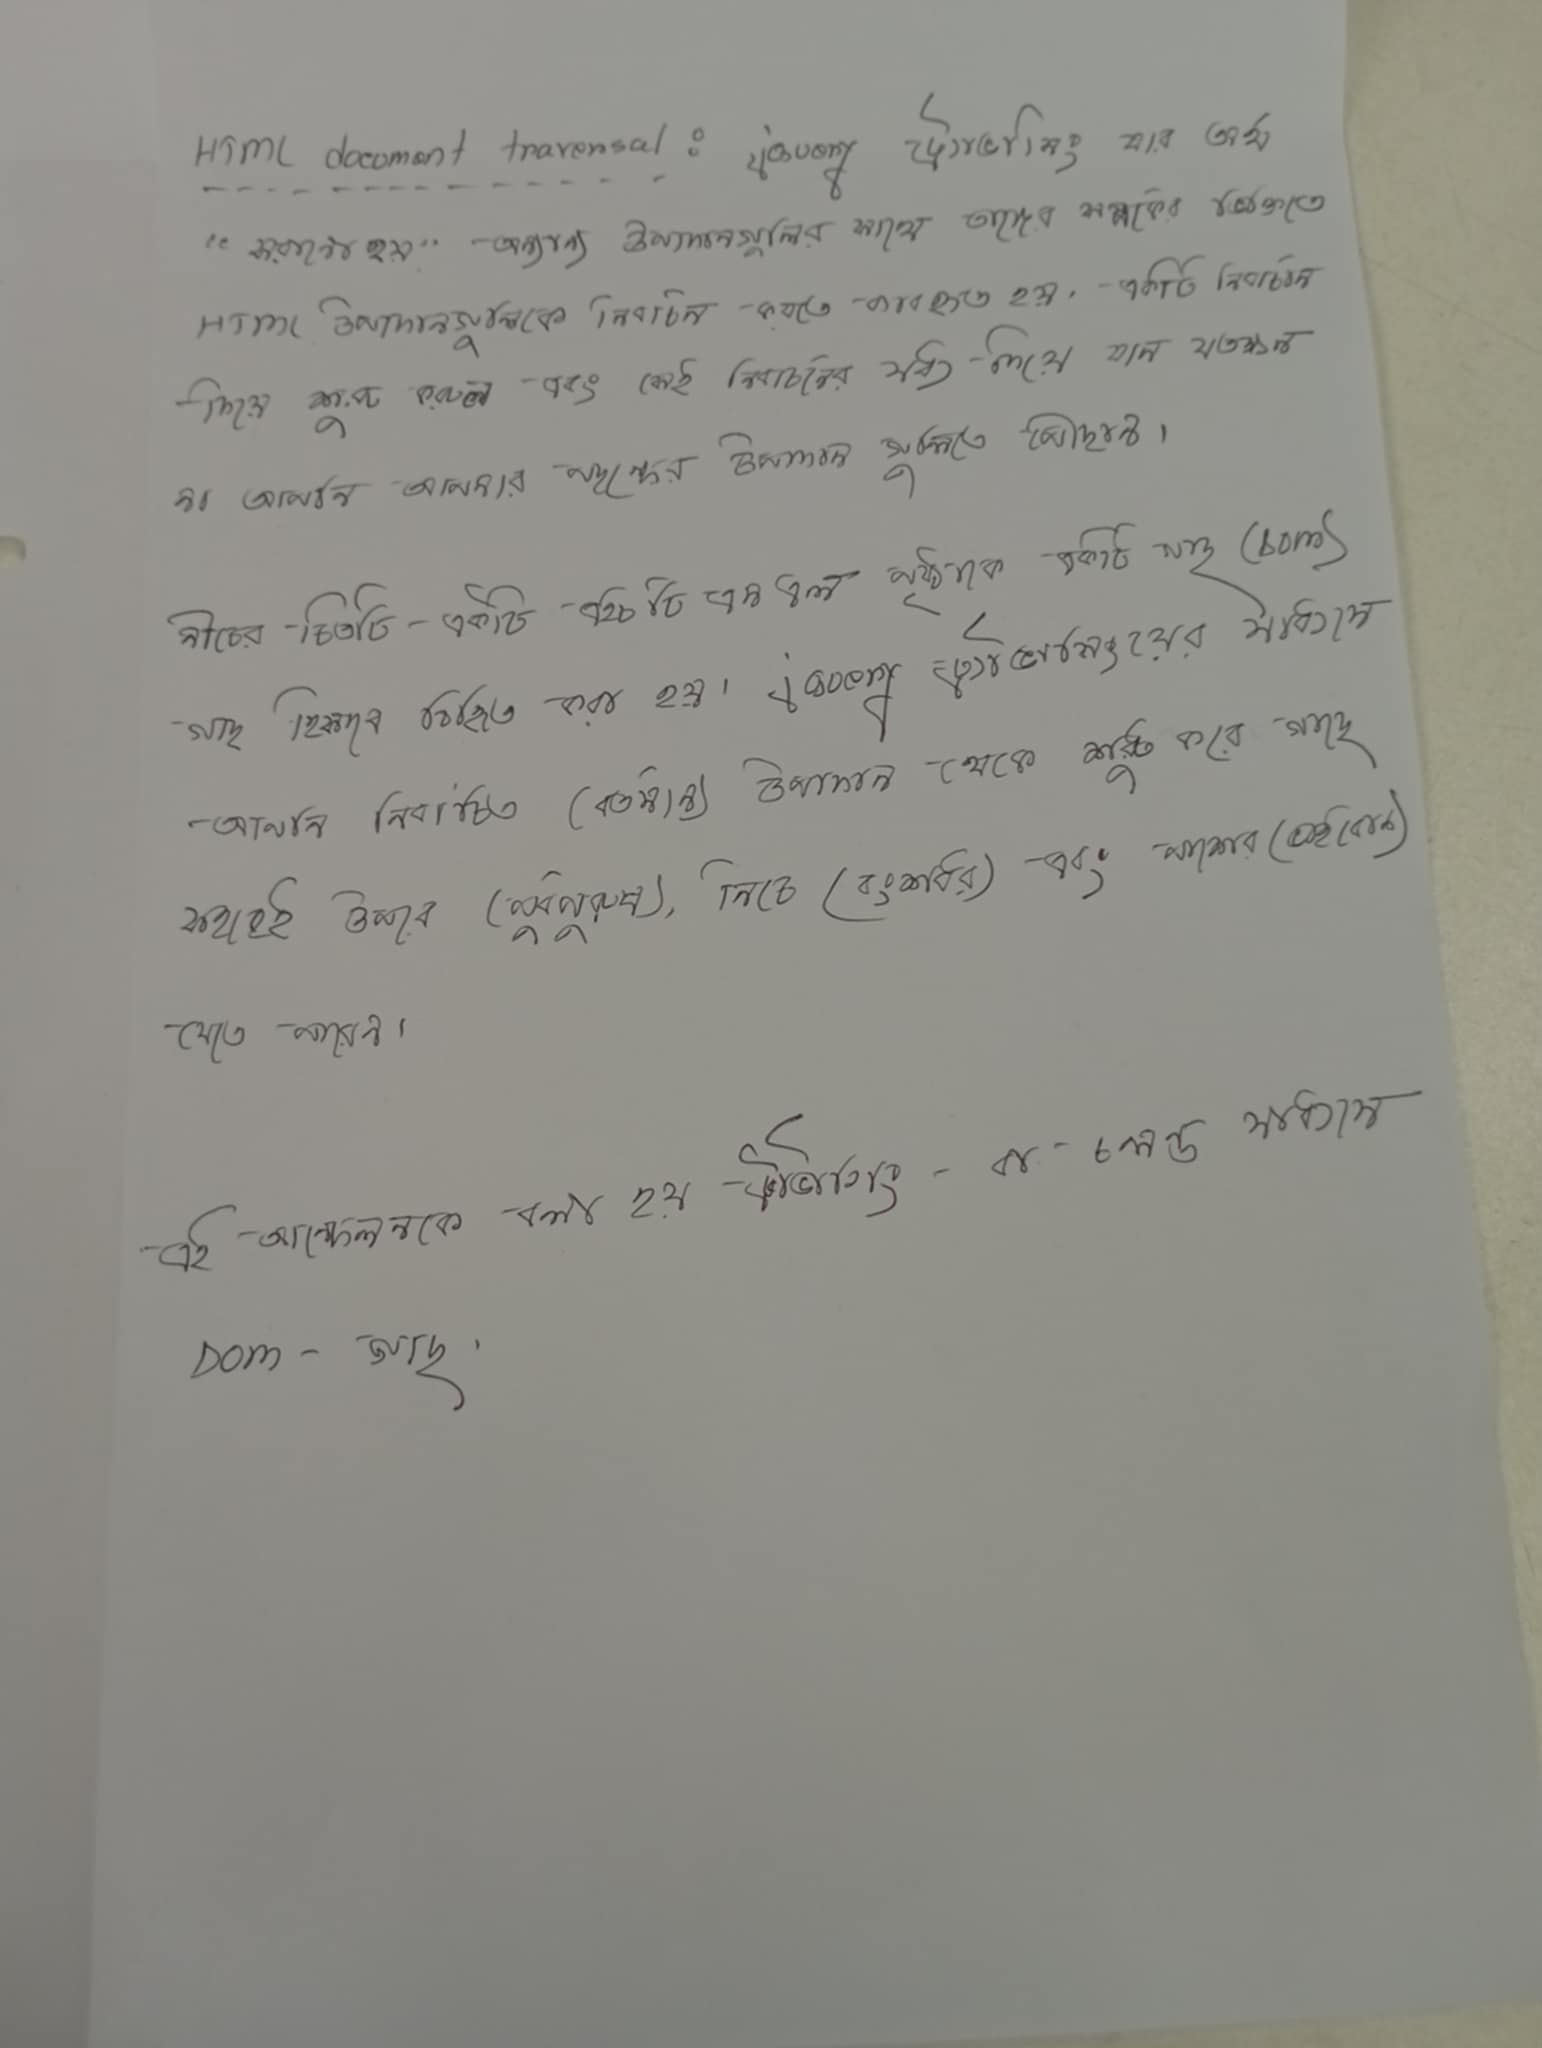 HTML document traversal : jQuery ট্রাভার্সিং যার অর্থ
"সরানো হয়" অন্যান্য উপাদানগুলির সাথে তাদের সম্পর্কের ভিত্তিতে
HTML উপাদানগুলিকে নির্বাচন করতে ব্যবহৃত হয়। একটি নির্বাচন
দিয়ে শুরু করুন এবং সেই নির্বাচনের মধ্য দিয়ে যান যতক্ষন
না আপনি আপনার পছন্দের উপাদান গুলিতে পৌছান।
নীচের চিত্রটি একটি এইচ টি এম এল পৃষ্ঠাকে একটি গাছ (DOM)
গাছ হিসাবে চিহ্নিত করা হয়। jQuery ট্রাভার্সিংয়ের মাধ্যমে
আপনি নির্বাচিত (বর্তমান) উপাদান থেকে শুরু করে গাছে
সহজেই উপরে (পূর্বপুরুষ), নিচে (বংশধর) এবং পাশের (ভাইবোন)
যেতে পারেন।
এই আন্দোলনকে বলা হয় ট্রাভার্সিং - বা - চলন্ত মাধ্যমে
DOM - গাছ।